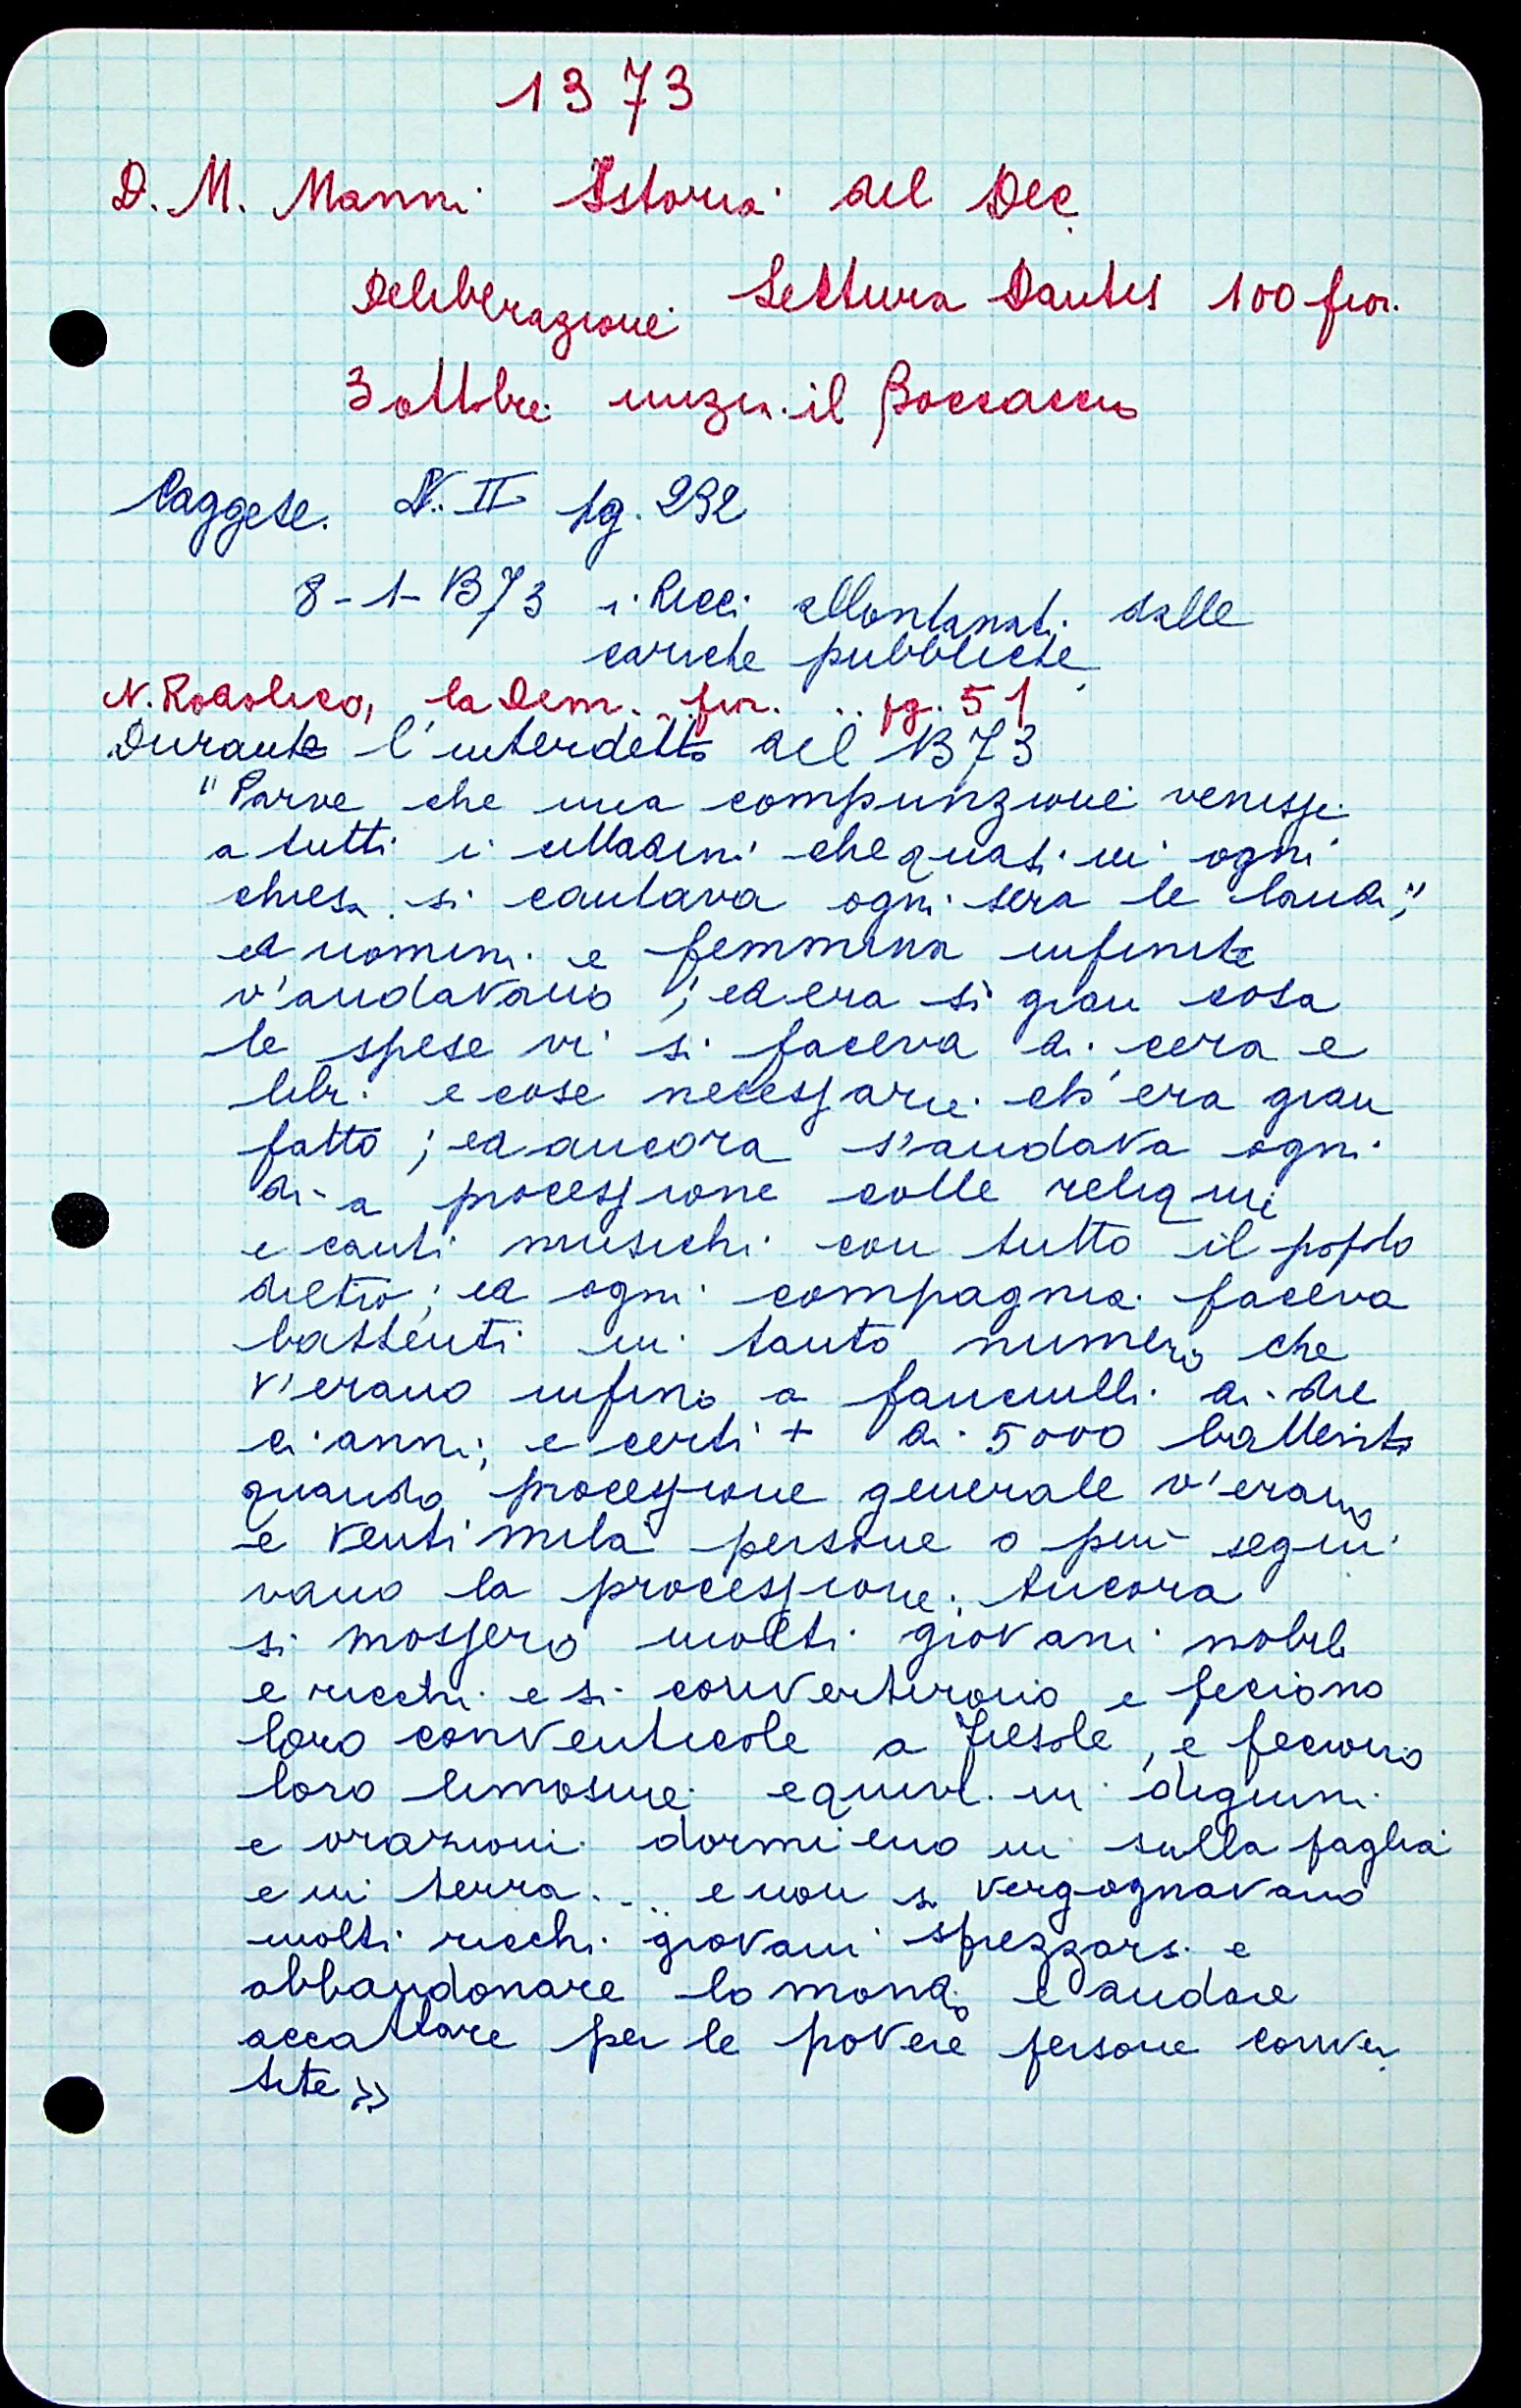 1373
D. M. Manni Istoria del Dec.
Deliberazione Lettura Dantis 100 fior.
3 ottobre inizia il Boccaccio
Caggese. V. II pg. 292
8-1-1373 i Ricci allontanati dalle
cariche pubbliche
N. Rodolico, la Dem. fior. .. pg. 51
Durante l'interdetto del 1373
"Parve che una compunzione venisse
a tutti i cittadini che quasi in ogni
chiesa si cantava ogni sera le laudi,"
ed uomini e femmina infinite
v'andavano ; ed era sì gran cosa
le spese vi si faceva di cera e
libri e cose necessarie ch'era gran
fatto ; ed ancora s'andava ogni
dì a processione colle reliquie
e canti musichi con tutto il popolo
dietro ; ed ogni compagnia faceva
battenti in tanto numero che
v'erano infino a fanciulli di die
ci anni; e certi + di 5000 battenti
quando processione generale v'erano
e venti mila persone o più segui
vano la processione. Ancora
si mossero molti giovani nobili
e ricchi e si convertirono e feciono
loro conventicole a Fiesole, e feciono
loro limosine e quivi in digiuni
e orazioni dormieno in sulla paglia
e in terra... e non si vergognavano
molti ricchi giovani sprezzarsi e
abbandonare lo mondo e andare
accattare per le povere persone conver
tite»